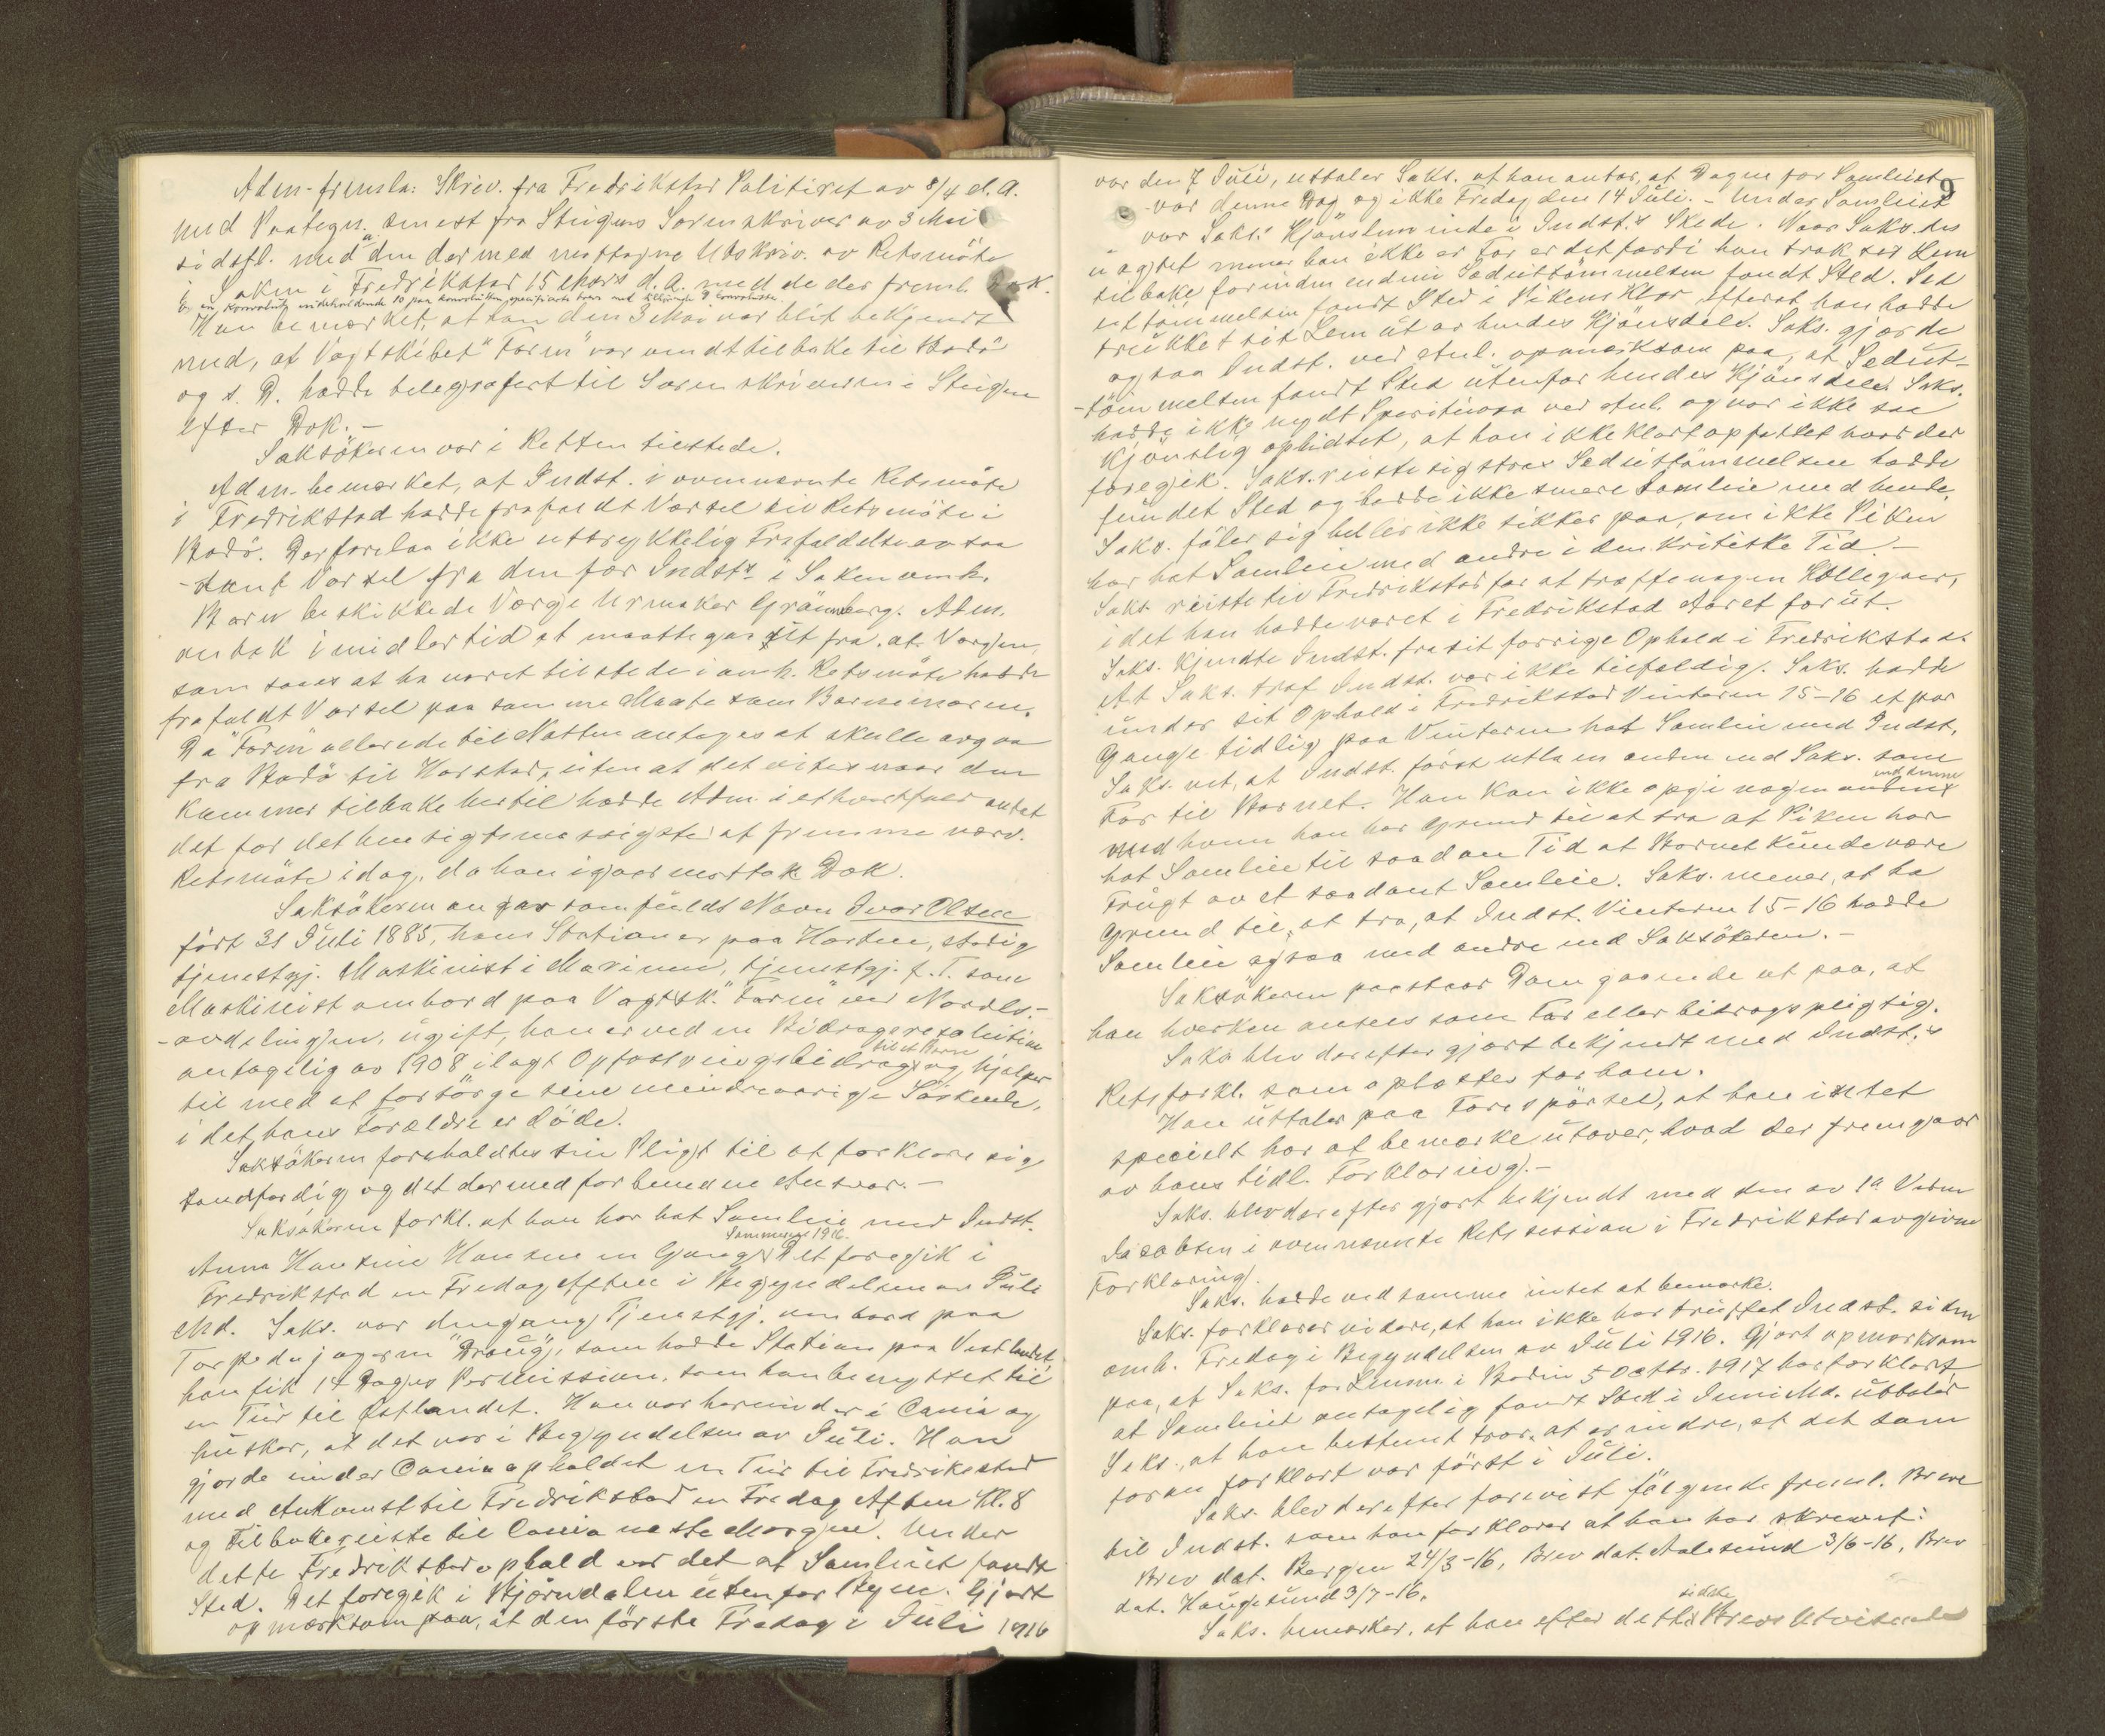 Adm. fremla: Skriv. fra Fredrikstad Politiret av 8/4 d.A.
med Paategn. senest fra Steigens Sorenskriver av 3 Mai
sidstl. med den dermed mottagne Utskriv. av Retsmöte
i Saken i Fredrikstad 15 Mars d.A. med de der freml. Dok.
og en Konvolut indeholdende 10 paa Konvolutten specificerte
Han bemerket, at han den 3 Mai var blit bekjendt
med, at Vagtskibet "Farm" var vendt tilbake til Bodö
og s. D. hadde telegrafert til Sorenskriveren i Steigen
efter Dok. -
Saksökeren var i Retten tilstede.
Adm. bemerket, at Indst. i ovennevnte Retsmöte
i Fredrikstad hadde frafaldt Varsel til Retsmöte i
Bodö. Der forelaa ikke uttrykkelig Frafaldelse av saa-
-dant Varsel fra den for Indst.s i Saken omh.
Barn beskikkede Verge Urmaker Grännberg. Adm.
antok imidlertid at maatte gaa ut fra, at Vergen,
som saaes at ha været tilstede i omh. Retsmöte hadde
frafaldt Varsel paa samme Maate som Barnemoren.
Da "Farm" allerede til Natten antages at skulle avgaa
fra Bodö til Harstad, uten at det vites naar den
kommer tilbake hertil hadde Adm. i ethvertfald antat
det for det hensigtsmessigste at fremme nærv.
Retsmöte idag, da han igaar mottok Dok.
Saksökeren angav som fuldt Navn Ivar Olsen
födt 31 Juli 1885, hans Station er paa Horten, stadig
tjenestgj. Maskinist i Marinen, tjenestgj. f. T. som
Maskinist ombord paa Vagtsk. "Farm" ved Nordls.-
-avdelingen, ugift, han er ved en Bidragsresolution
til et Barn
antagelig av 1908 ilagt Opfostringsbidrag og hjælper
til med at forsörge sine mindreaarige Söskende,
idet hans Forældre er döde.
Saksökeren foreholdtes sin Pligt til at forklare sig
sandfærdig og det dermed forbundne Ansvar. -
Saksökeren forkl. at han har hat Samleie med Indst.
Sommeren 1916.
Anna Hansine Hansen en Gang. Det foregik i
Fredrikstad en Fredag Aften i Begyndelsen av Juli
Md. Saks. var dengang Tjenestgj. ombord paa
Torpedojageren "Draug", som hadde Station paa Vestlandet,
han fik 14 Dages Permission, som han benyttet til
en Tur til Östlandet. Han var herunder i Cania og
husker, at det var i Begyndelsen av Juli. Han
gjorde under Caniaopholdet en Tur til Fredrikstad
med Ankomst til Fredrikstad en Fredag Aften Kl. 8
og Tilbakereiste til Cania næste Morgen. Under
dette Fredrikstadophold var det at Samleiet fandt
Sted. Det foregik i Björndalen utenfor Byen. Gjort
opmerksom paa, at den förste Fredag i Juli 1916
9
var den 7 Juli, uttaler Saks. at han antar, at Dagen for Samleiet
var denne Dag og ikke Fredag den 14 Juli. - Under Samleiet
var Saks.s Kjönslem inde i Indst.s Skede. Naar Saks. des-
uagtet mener han ikke er Far er det fordi han trak sit Lem
tilbake forinden endnu Sæduttömmelsen fandt Sted. Sæd-
uttömmelsen fandt Sted i Pikens Klær, efterat han hadde
trukket sit Lem ut av hendes Kjönsdele. Saks. gjorde
ogsaa Indst. ved Anl. opmerksom paa, at Sædut-
-tömmelsen fandt Sted utenfor hendes Kjönsdele. Saks.
hadde ikke nydt Spirituosa ved Anl. og var ikke saa
kjönslig ophidset, at han ikke klart opfattet hvad der
foregik. Saks. reiste sig strax Sæduttömmelsen hadde
fundet Sted og hadde ikke senere Samleie med hende.
Saks. föler sig heller ikke sikker paa, om ikke Piken
har hat Samleie med andre i den kritiske Tid. -
Saks. reiste til Fredrikstad for at træffe nogen Kolleger,
idet han hadde været i Fredrikstad Aaret forut.
Saks. kjendte Indst. fra sit forrige Ophold i Fredrikstad.
At Saks. traf Indst. var ikke tilfeldig. Saks. hadde
under sit Ophold i Fredrikstad Vinteren 15-16 et par
Gange tidlig paa Vinteren hat Samleie med Indst.
Saks. vet, at Indst. först utla en anden end Saks. som
Far til Barnet. Han kan ikke opgi nogen
med hvem han har Grund til at tro at Piken har
hat Samleie til saadan Tid at Barnet kunde være
Frugt av et saadant Samleie. Saks. mener, at ha
Grund til, at tro, at Indst. Vinteren 15-16 hadde
Samleie ogsaa med andre end Saksökeren. -
Saksökeren paastaar Dom gaaende ut paa, at
han hverken ansees som Far eller bidragspligtig.
Saks. blev derefter gjort bekjendt med Indst.s
Retsforkl. som oplæstes for ham.
Han uttaler paa Forespörsel, at han intet
specielt har at bemerke utover, hvad der fremgaar
av hans tidl. Forklaring. -
Saks. blev derefter gjort bekjendt med den av 1ª Vidne
Jacobsen i ovennevnte Retssession i Fredrikstad avgivne
Forklaring.
Saks. hadde ved samme intet at bemerke.
Saks. forklarer videre, at han ikke har truffet Indst. siden
omh. Fredag i Begyndelsen av Juli 1916. Gjort opmerksom
paa, at Saks. for Lensm. i Bodin 5 Octbr. 1917 har forklart,
at Samleiet antagelig fandt Sted i Juni Md. uttaler
Saks., at han bestemt tror at erindre, at det som
foran forklart var först i Juli.
Saks. blev derefter forevist fölgende freml. Breve
til Indst. som han forklarer at han har skrevet:
Brev dat. Bergen 24/3-16, Brev dat. Aalesund 3/6-16, Brev
dat. Haugesund 3/7-16.
sidste
Saks. bemerker, at han efter dette Brevs Utvisende